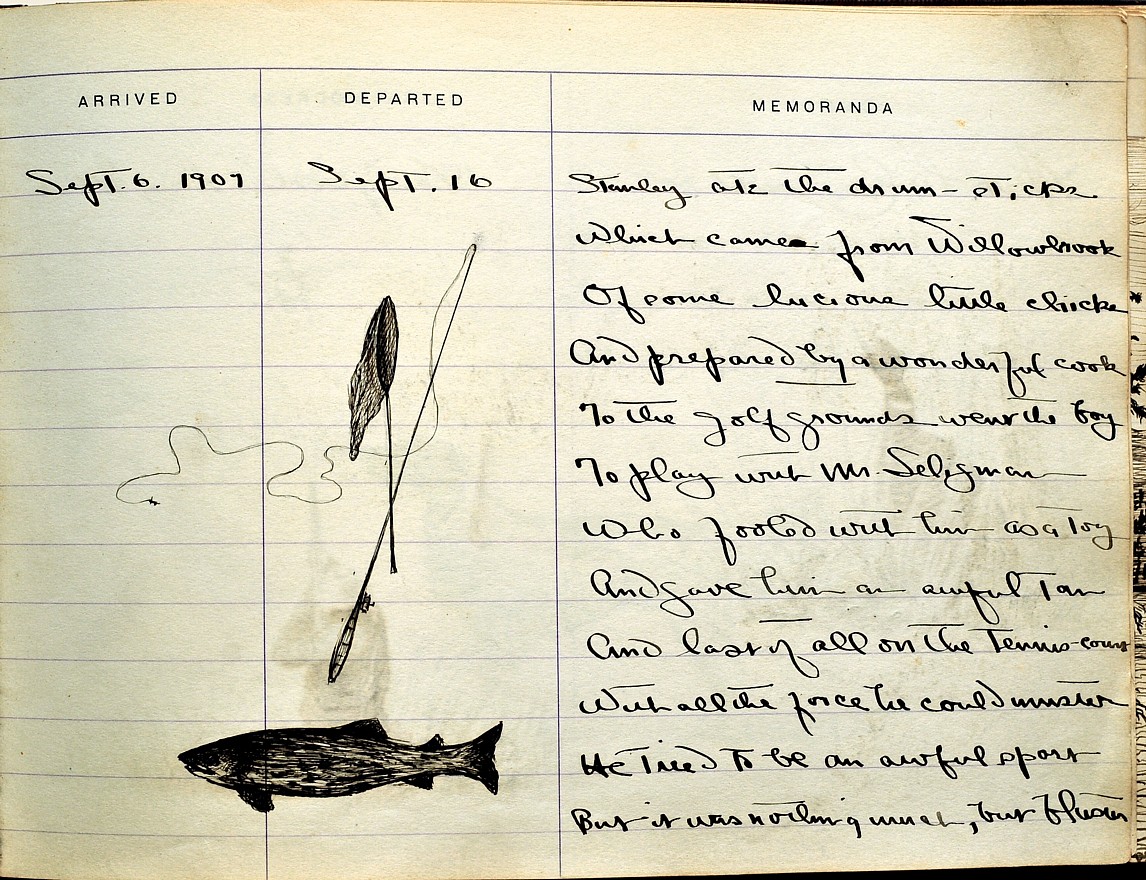 ARRIVED DEPARTED MEMORANDA
Sept. 6. 1907 Sept. 16
Stanley ate the drum-sticks
Which came from Willowbrook
Of some lucious little chicks
And prepared by a wonderful cook
To the golf grounds went the boy
To play with Mr. Seligman
Who fooled with him as a toy
And gave him an awful tan
And last of all on the Tennis-court
With all the force he could muster
He tried to be an awful sport
But it was nothing much, but bluster